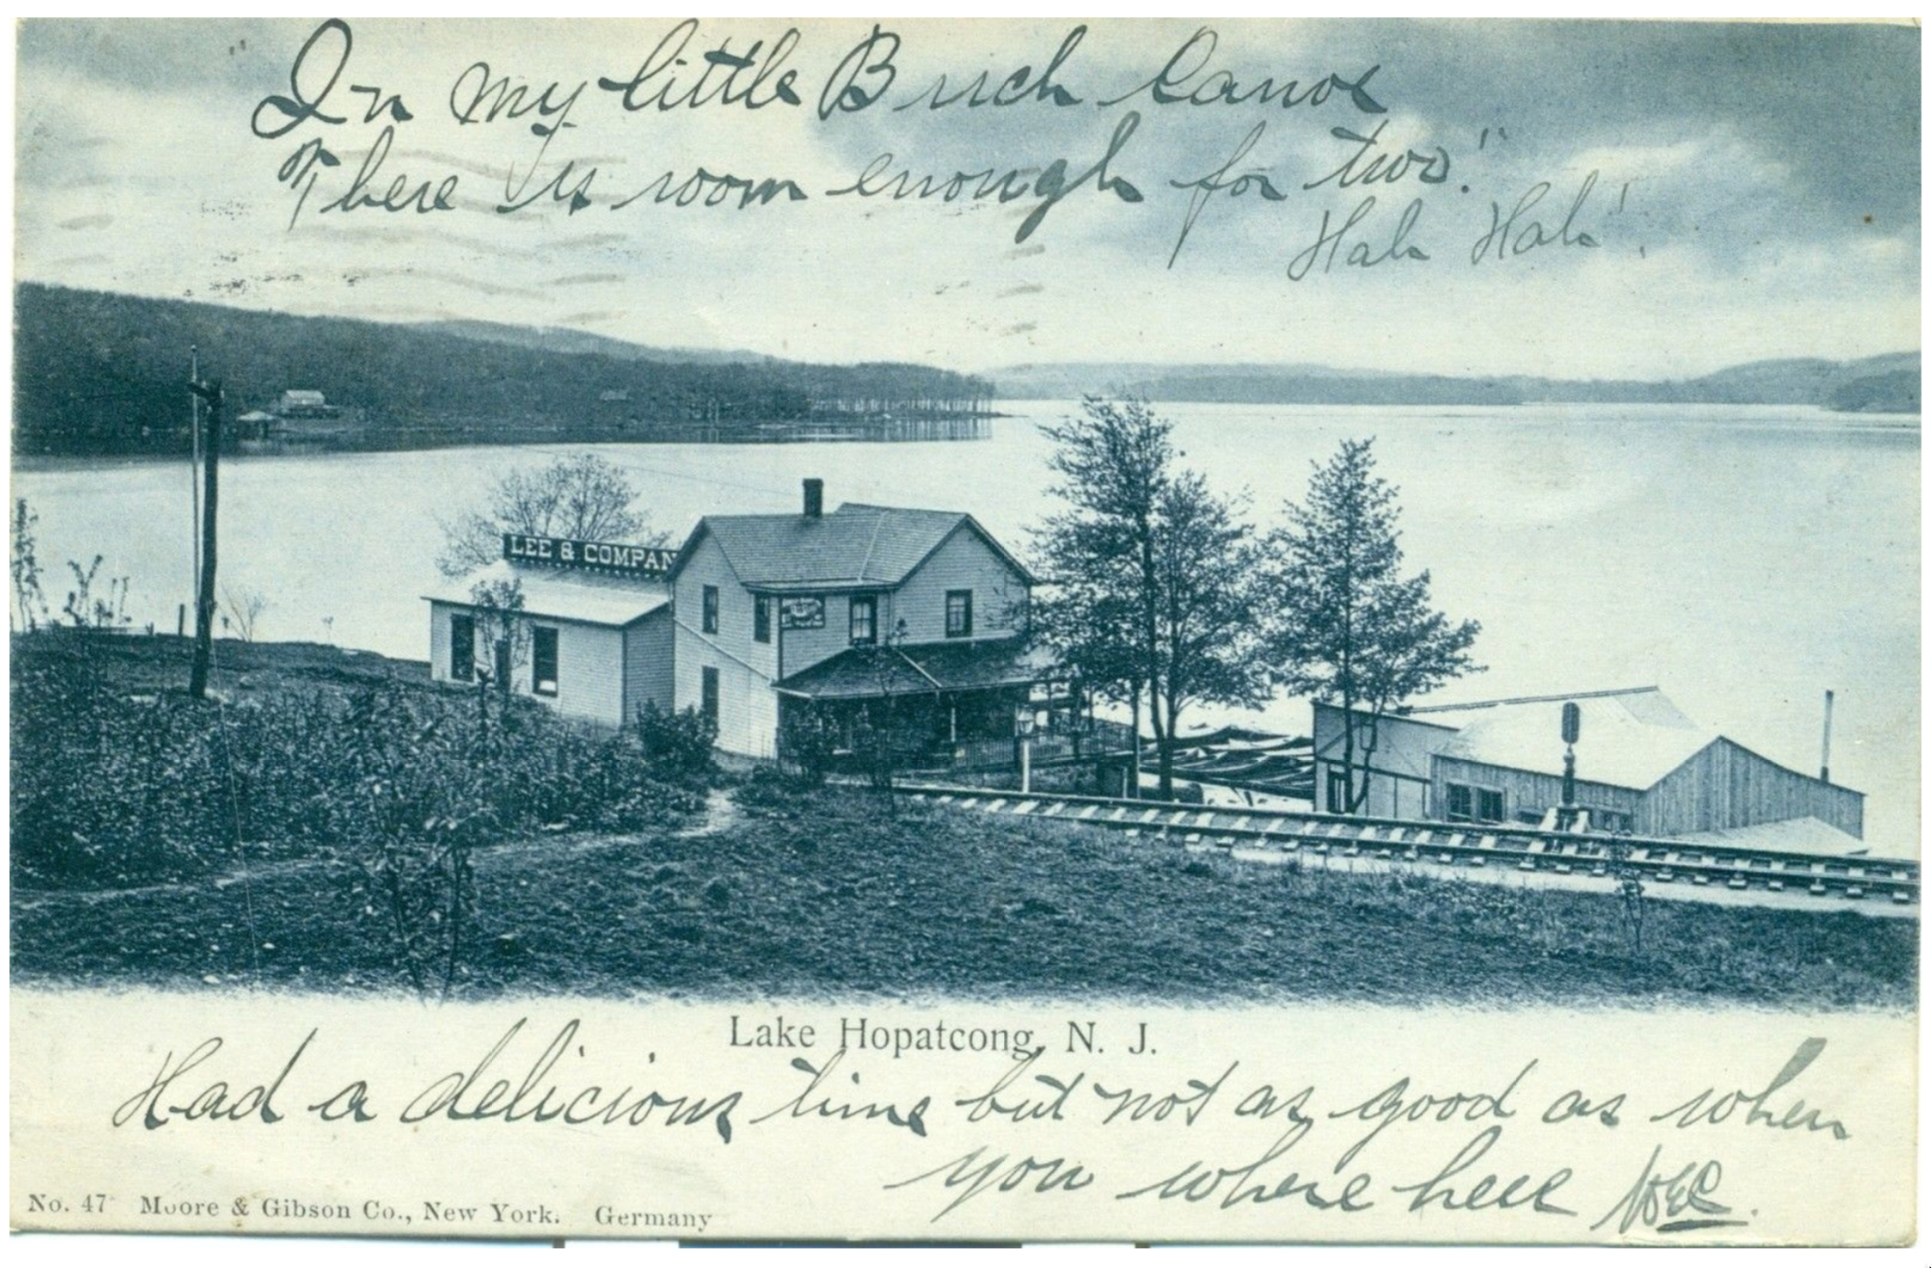 "In my little Birch Canoe
There is room enough for two."
Hah Hah!
LEE & COMPAN
Lake Hopatcong, N. J.
Had a delicious time but not as good as when
you where here
No. 47 Moore & Gibson Co., New York. Germany